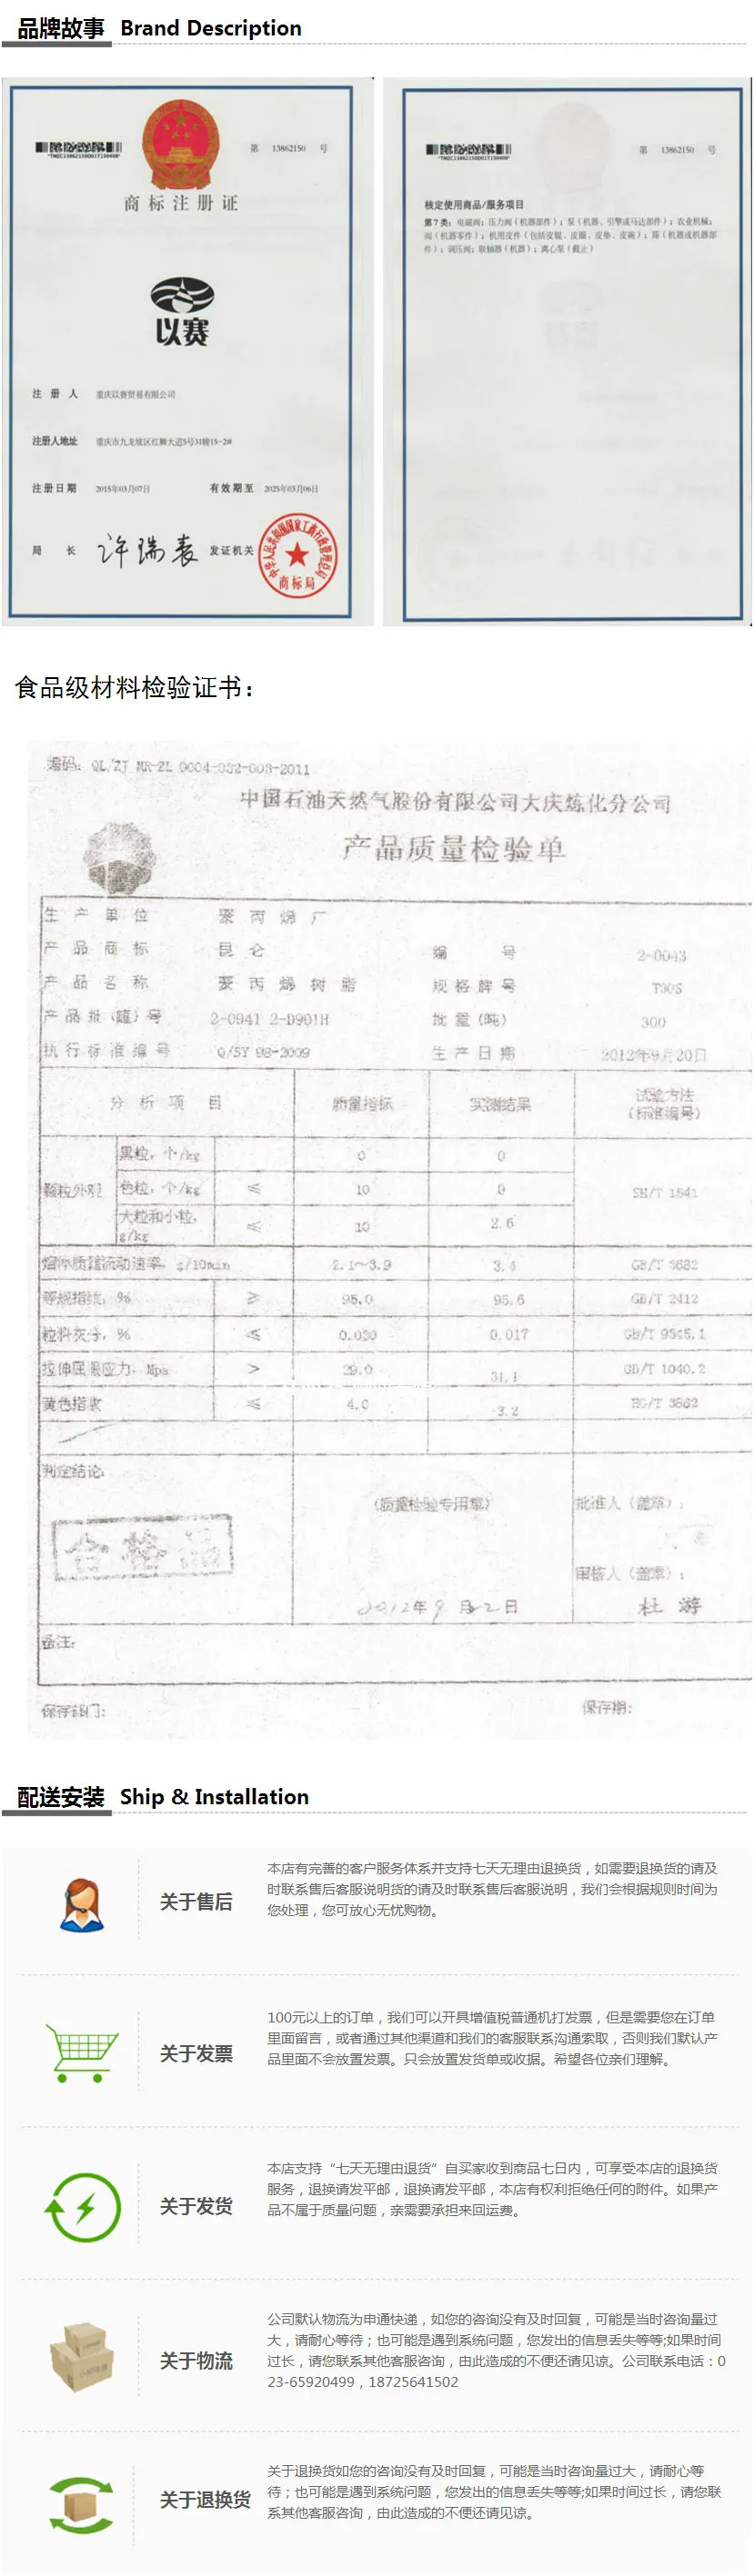 品牌故事 Brand Description
第 13862150 号
*TMZC13862150D01T150408*
商标注册证
以赛
注 册 人 重庆以赛贸易有限公司
注册人地址 重庆市九龙坡区红狮大道5号31幢15-2#
注册日期 2015年03月07日 有效期至 2025年03月06日
局 长 许瑞表 发证机关
中华人民共和国国家工商行政管理总局
商标局
第 13862150 号
*TMZC13862150D01T150408*
核定使用商品/服务项目
第 7 类：电磁阀；压力阀（机器部件）；泵（机器、引擎或马达部件）；农业机械；
阀（机器零件）；机用皮件（包括皮辊、皮圈、皮垫、皮碗）；筛（机器或机器部
件）；调压阀；联轴器（机器）；离心泵（截止）
食品级材料检验证书：
编码：QL/ZJ MR-ZL 0004-032-003-2011
中国石油天然气股份有限公司大庆炼化分公司
产品质量检验单
生产单位 聚丙烯厂
产品商标 昆仑 编 号 2-0043
产品名称 聚丙烯树脂 规格牌号 T30S
产品批(罐)号 2-0941 2-D901H 批量(吨) 300
执行标准编号 Q/SY 98-2009 生产日期 2012年9月20日
分析项目 质量指标 实测结果 试验方法
(标准编号)
颗粒外观 黑粒，个/kg 0 0 SH/T 1541
色粒，个/kg ≤ 10 0
大粒和小粒，
g/kg ≤ 10 2.6
熔体质量流动速率，g/10min 2.1~3.9 3.4 GB/T 3682
等规指数，% ≥ 95.0 95.6 GB/T 2412
粒料灰分，% ≤ 0.030 0.017 GB/T 9345.1
拉伸屈服应力，Mpa > 29.0 31.1 GB/T 1040.2
黄色指数 ≤ 4.0 -3.2 HG/T 3862
判定结论：
合格品
(质量检验专用章) 批准人(盖章)：
审核人(盖章)：
2012年9月22日 杜游
备注：
保存部门： 保存期：
配送安装 Ship & Installation
关于售后
本店有完善的客户服务体系并支持七天无理由退换货，如需要退换货的请及
时联系售后客服说明货的请及时联系售后客服说明，我们会根据规则时间为
您处理，您可放心无忧购物。
关于发票
100元以上的订单，我们可以开具增值税普通机打发票，但是需要您在订单
里面留言，或者通过其他渠道和我们的客服联系沟通索取，否则我们默认产
品里面不会放置发票。只会放置发货单或收据。希望各位亲们理解。
关于发货
本店支持“七天无理由退货”自买家收到商品七日内，可享受本店的退换货
服务，退换请发平邮，退换请发平邮，本店有权利拒绝任何的附件。如果产
品不属于质量问题，亲需要承担来回运费。
关于物流
公司默认物流为申通快递，如您的咨询没有及时回复，可能是当时咨询量过
大，请耐心等待；也可能是遇到系统问题，您发出的信息丢失等等;如果时间
过长，请您联系其他客服咨询，由此造成的不便还请见谅。公司联系电话：0
23-65920499，18725641502
关于退换货
关于退换货如您的咨询没有及时回复，可能是当时咨询量过大，请耐心等
待；也可能是遇到系统问题，您发出的信息丢失等等;如果时间过长，请您联
系其他客服咨询，由此造成的不便还请见谅。